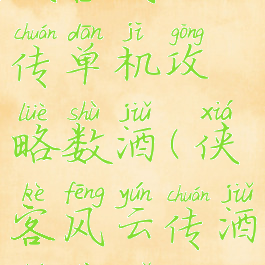 chuán dān jī gōng
传单机攻
lüè shù jiǔ xiá
略数酒(侠
kè fēng yún chuán jiǔ
客风云传酒